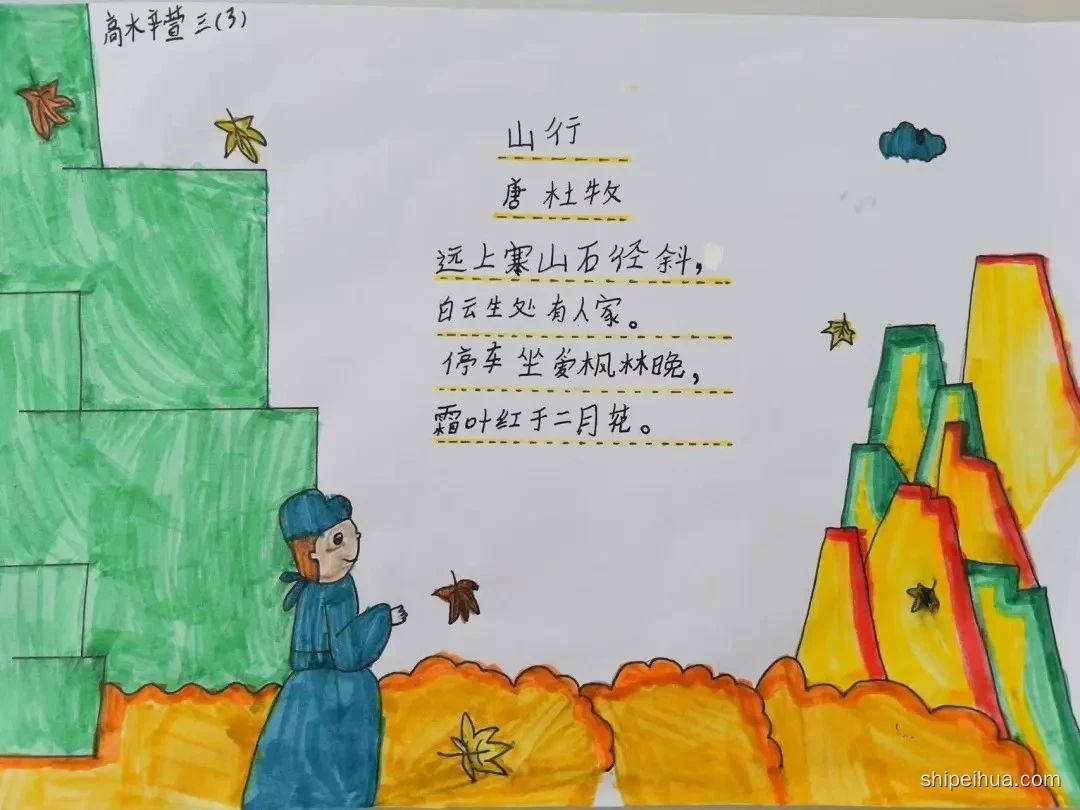 高水辛萱 三(3)
山行
唐 杜牧
远上寒山石径斜，
白云生处有人家。
停车坐爱枫林晚，
霜叶红于二月花。
shipeihua.com